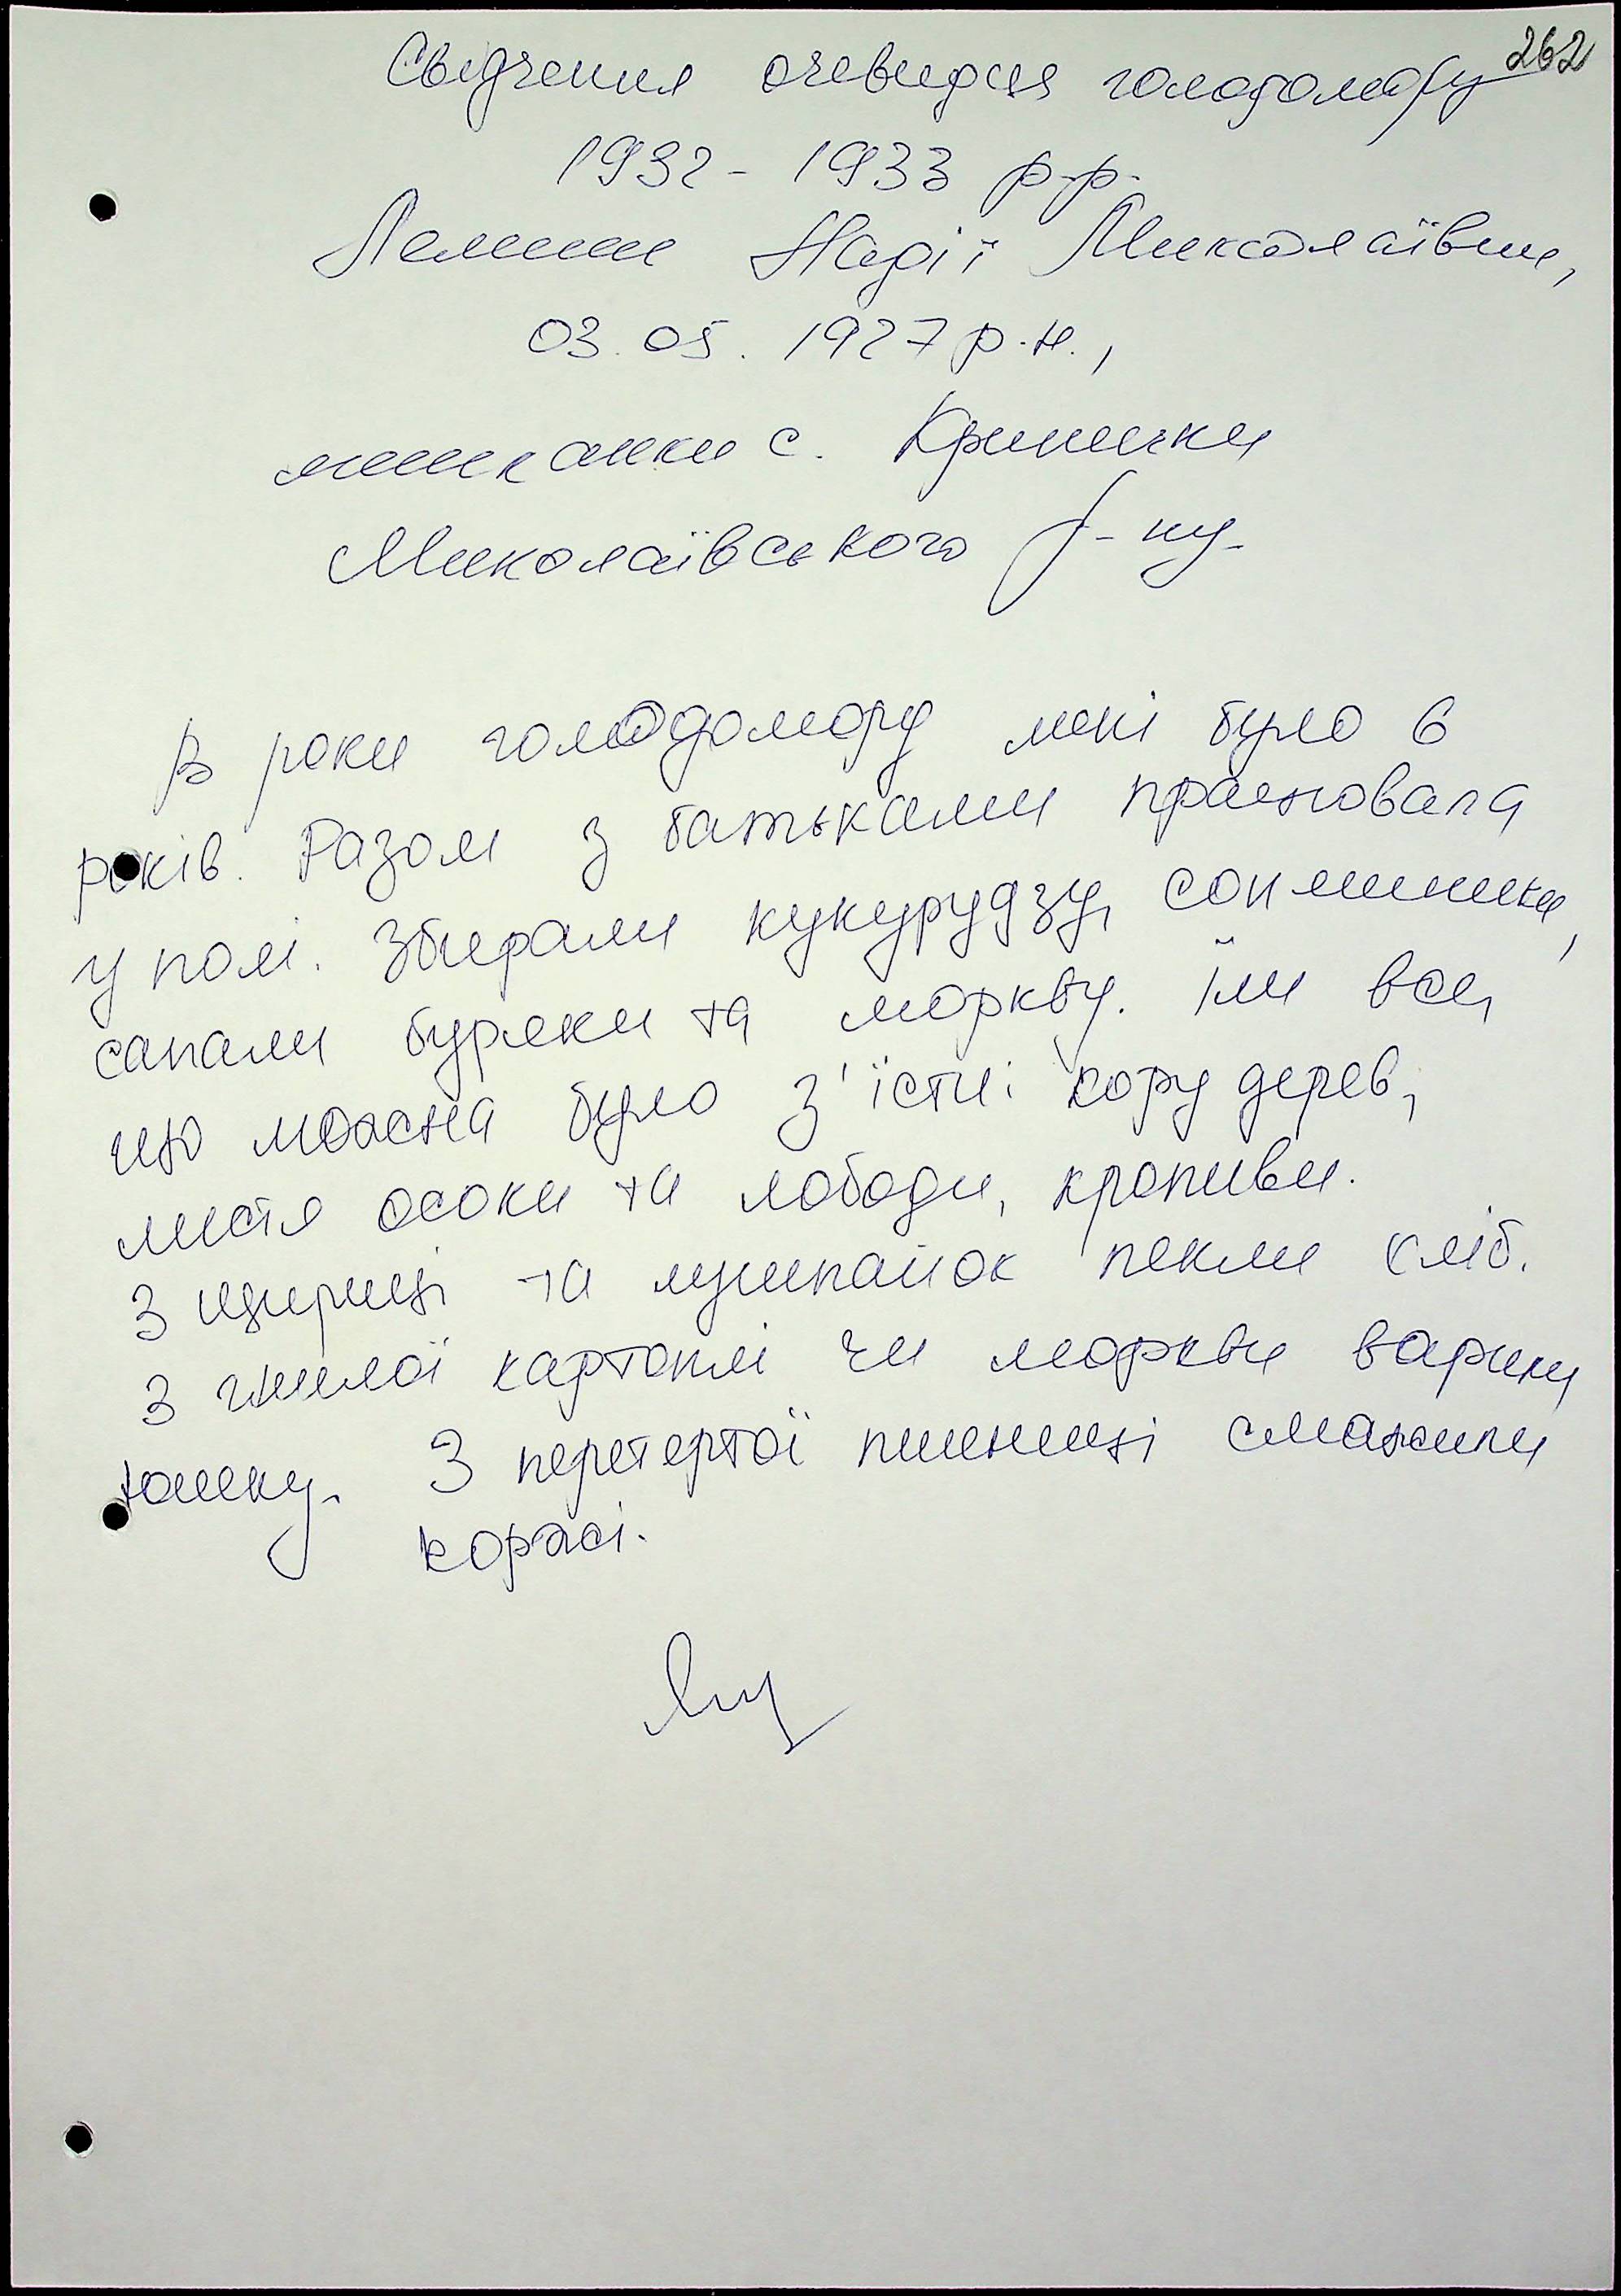 262
Свідчення очевидця голодомору
1932 - 1933 р.р.
Надії Миколаївни,
03.05.1927 р.н.,
мешканки с. Кринички
Миколаївського р-ну.
В роки голодомору мені було 6
років. Разом з батьками працювала
у полі. Збирали кукурудзу, соняшники,
сапали буряки та моркву. Їли все,
що можна було з'їсти: кору дерев,
листя осоки та лободи, кропиви.
З щириці та лушпайок пекли хліб.
З гнилої картоплі чи моркви варили
юшку. З перетертої пшениці смажили
коржі.